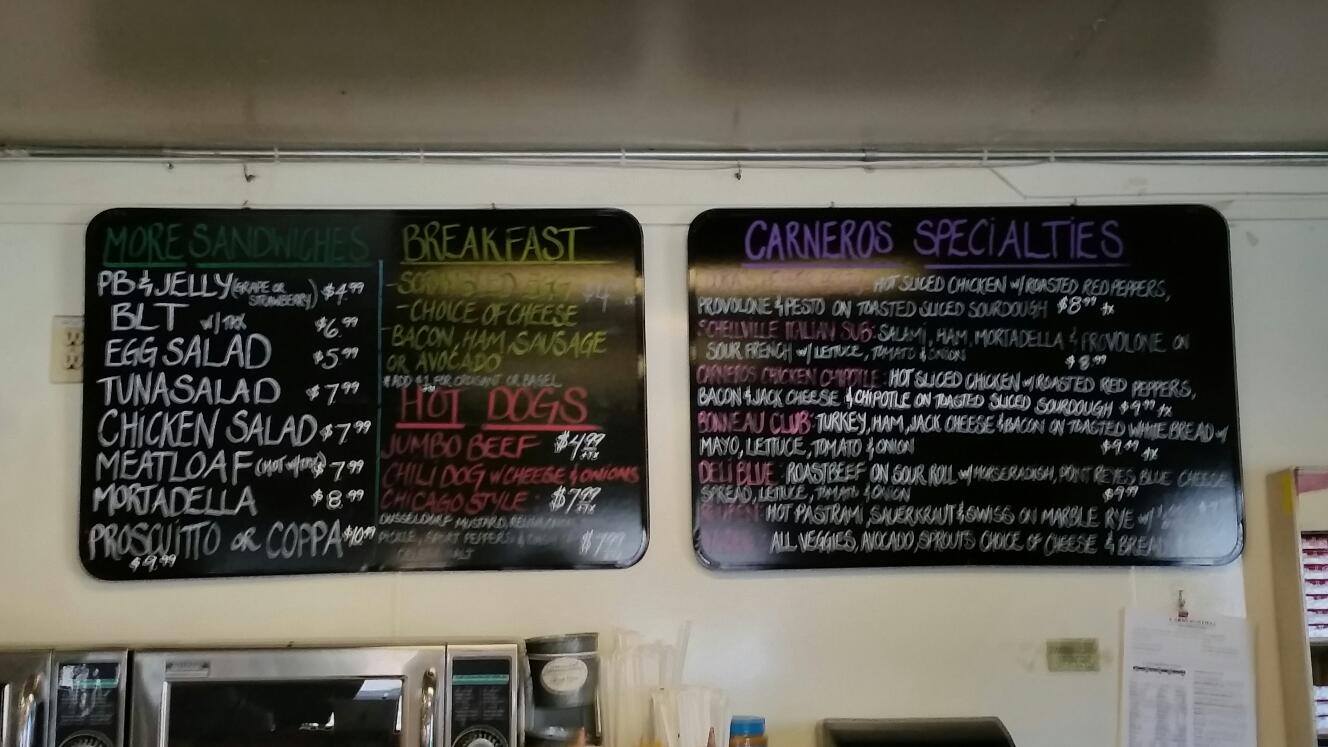 MORE SANDWICHES
PB & JELLY (GRAPE OR STRAWBERRY) $4.99
BLT W/ $6.99
EGG SALAD $5.99
TUNA SALAD $7.99
CHICKEN SALAD $7.99
MEATLOAF (HOT $7.99
MORTADELLA $8.99
PROSCUITTO OR COPPA $10.99
$9.99
BREAKFAST
- SCRAMBLED EGG
- CHOICE OF CHEESE
- BACON, HAM, SAUSAGE
OR AVOCADO
ADD $1 FOR CROISANT OR BAGEL
HOT DOGS
JUMBO BEEF $4.99 +TX
CHILI DOG W CHEESE & ONIONS
CHICAGO STYLE: $7.99 +TX
DUSSELDORF MUSTARD, RELISH,
PICKLE, SPORT PEPPERS & $7.99
CARNEROS SPECIALTIES
HOT SLICED CHICKEN W/ ROASTED RED PEPPERS,
PROVOLONE & PESTO ON TOASTED SLICED SOURDOUGH $8.99 +TX
SCHELLVILLE ITALIAN SUB: SALAMI, HAM, MORTADELLA & PROVOLONE ON
SOUR FRENCH W/ LETTUCE, TOMATO & ONION $8.99
CARNEROS CHICKEN CHIPOTLE: HOT SLICED CHICKEN W/ ROASTED RED PEPPERS,
BACON & JACK CHEESE & CHIPOTLE ON TOASTED SLICED SOURDOUGH $9.99 +TX
BONNEAU CLUB: TURKEY, HAM, JACK CHEESE & BACON ON TOASTED WHITE BREAD W/
MAYO, LETTUCE, TOMATO & ONION $9.99 +TX
DELI BLUE: ROAST BEEF ON SOUR ROLL W/ HORSERADISH, POINT REYES BLUE CHEESE
SPREAD, LETTUCE, TOMATO & ONION $9.99
HOT PASTRAMI, SAUERKRAUT & SWISS ON MARBLE RYE W/
ALL VEGGIES, AVOCADO, SPROUTS CHOICE OF CHEESE & BREAD